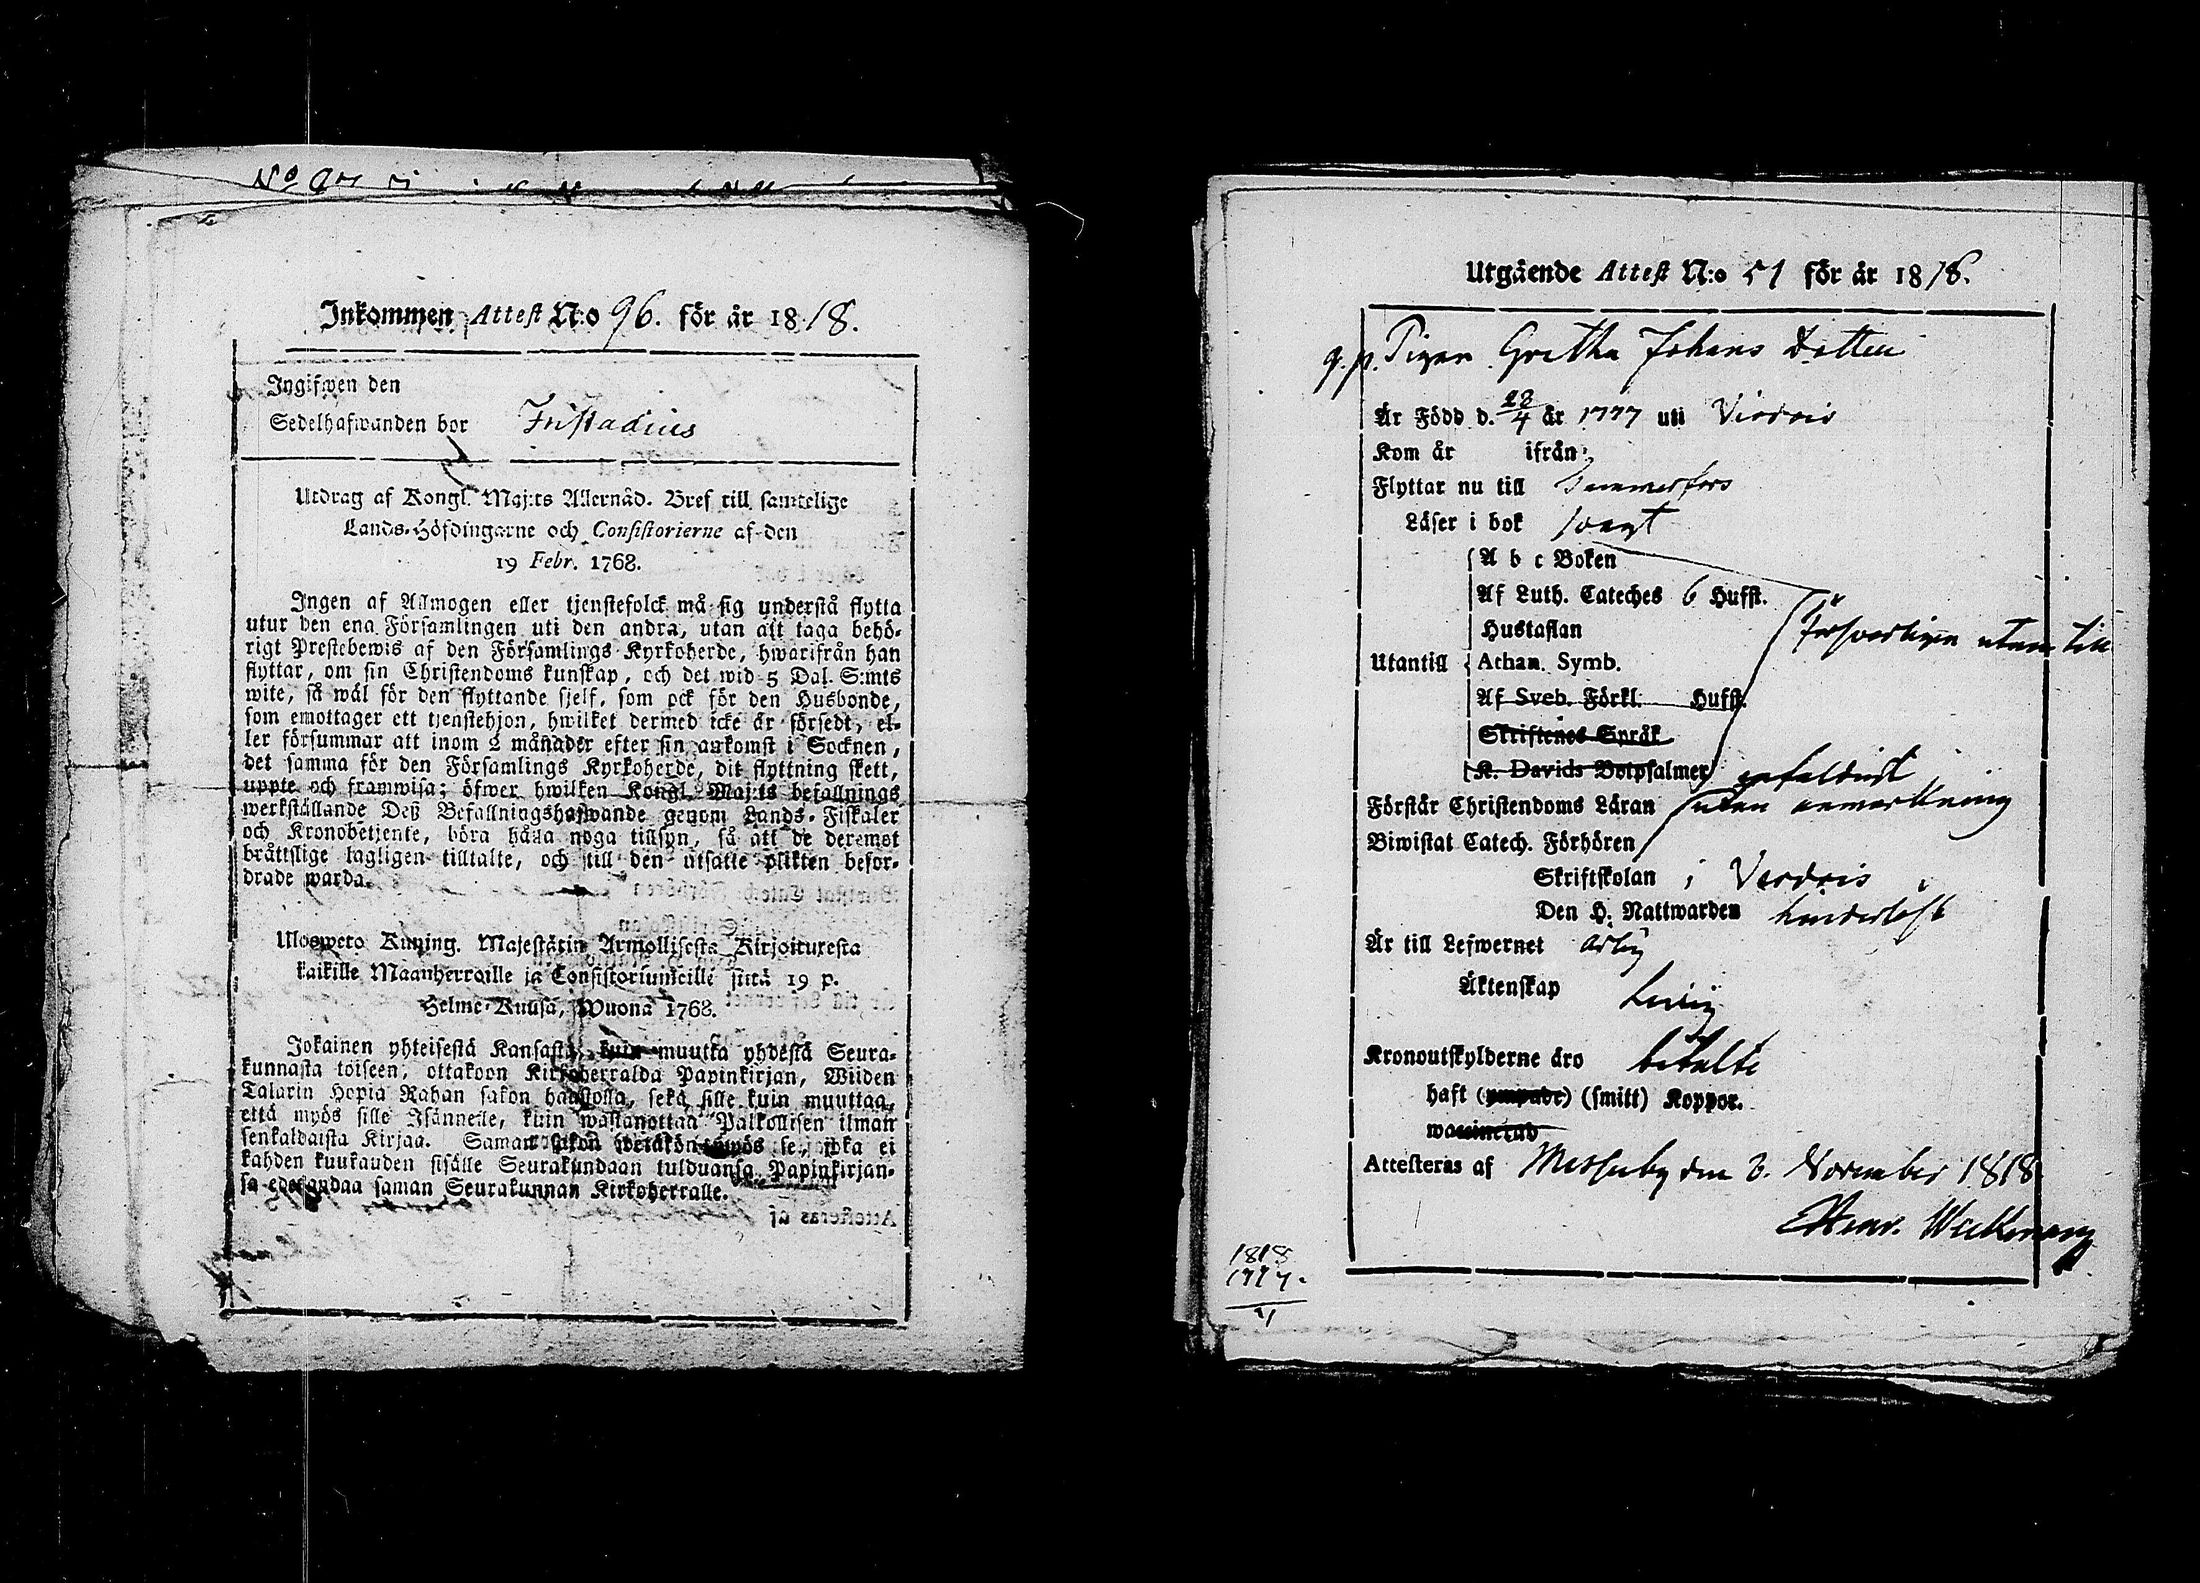 Inkommen Attest N:o 96. för år 1818.
Ingifwen den
Sedelhafwanden bor Fristadius
Utdrag af Kongl. Maj:ts Allernåd. Bref till samtelige
Lands-Höfdingarne och Consistorierne af den
19 Febr. 1768.
Ingen af Allmogen eller tjenstefolck må sig understå flytta
utur den ena Församlingen uti den andra, utan att taga behö-
rigt Prestebewis af den Församlings Kyrkoherde, hwarifrån han
flyttar, om sin Christendoms kunskap, och det wid 5 Dal. S:mts
wite, så wäl för den flyttande sjelf, som ock för den Husbonde,
som emottager ett tjenstehjon, hwilket dermed icke är försedt, el-
ler försummar att inom 2 månader efter sin ankomst i Socknen,
det samma för den Församlings Kyrkoherde, dit flyttning skett,
uppte och framwisa; öfwer hwilken Kongl. Maj:ts befallnings
werkställande Deß Befallningshafwande genom Lands-Fiskaler
och Kronobetjente, böra hålla noga tillsyn, så att de deremot
bråttslige lagligen tilltalte, och till den utsatte plikten befor-
drade warda.
Ulosweto Kuning. Majestätin Armollisesta Kirjoituxesta
kaikille Maanherroille ja Consistoriumeille siitä 19 p.
Helme-Kuusa, Wuona 1768.
Jokainen yhteisestä Kansasta, kuin muutta yhdestä Seura-
kunnasta toiseen, ottakoon Kirkoherralda Papinkirjan, Wiiden
Talarin Hopia Rahan sakon haastolla, sekä sille kuin muuttaa,
että myös sille Isännelle, kuin wastanottaa Palkollisen ilman
senkaldaista Kirjaa. Saman sakon wetäkön myös se, joka ei
kahden kuukauden sisälle Seurakundaan tulduansa Papinkirjan-
sa edesandaa saman Seurakunnan Kirkoherralle.
Utgående Attest N:o 51 för år 1818.
q.p. Pigan Gretha Johans Dotter
Är Född d. 28/4 år 1777 uti Virdois
Kom år ifrån
Flyttar nu till Tammerfors
Läser i bok swagt
A b c Boken
Af Luth. Cateches 6 Hufst.
Hustaflan
Utantill Athan. Symb.
Af Sveb. Förkl. Hufst.
Skriftenes Språk
K. Davids Botpsalmer
Förswarligen utan till
enfaldigt
Förstår Christendoms Läran utan anmärkning
Biwistat Catech. Förhören
Skriftskolan i Virdois
Den H. Nattwarden hinderlöst
Är till Lefwernet ärlig
Äktenskap ledig
Kronoutskylderne äro betalte
haft (ympade) (smitt) Koppor.
waccinerad
Attesteras af Messuby den 3. November 1818
1818
1777.
41